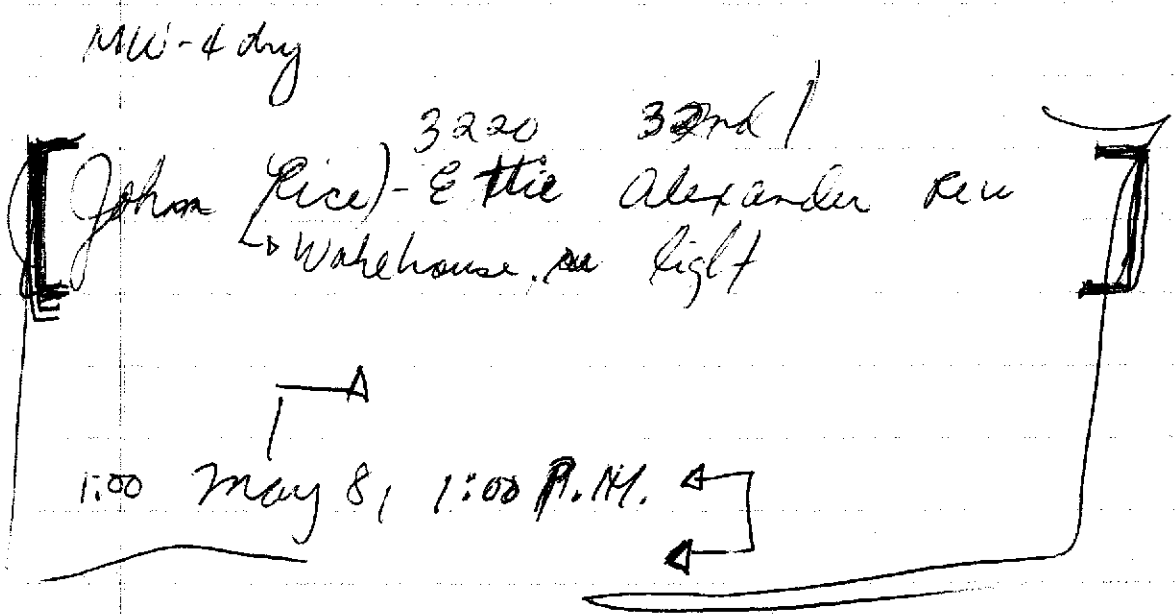 MW-4 dry
3220 32nd
John (Rice) - Ettie Alexander Rew
Warehouse. on light
1:00 May 8, 1:00 P.M.